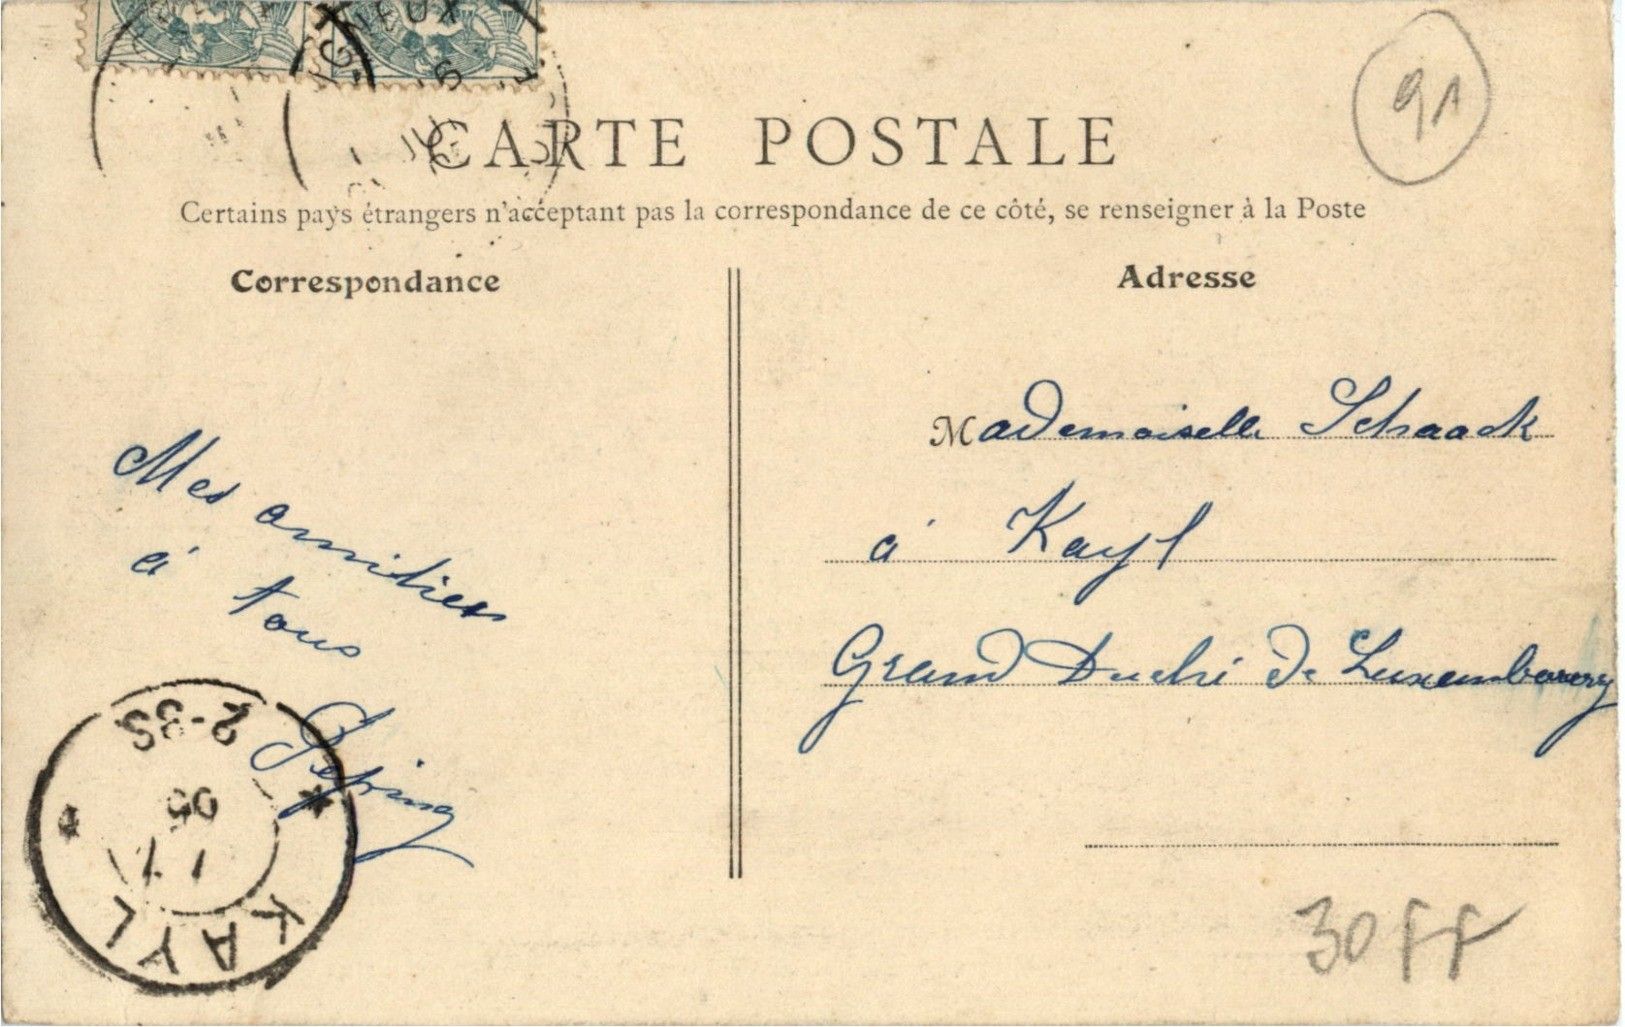 91
CARTE POSTALE
Certains pays étrangers n'acceptant pas la correspondance de ce côté, se renseigner à la Poste
Correspondance
Adresse
Mes amitiés
à tous
Mademoiselle Schaack
à Kayl
Grand Duché de Luxembourg
2-3S
05
KAYL
30FF